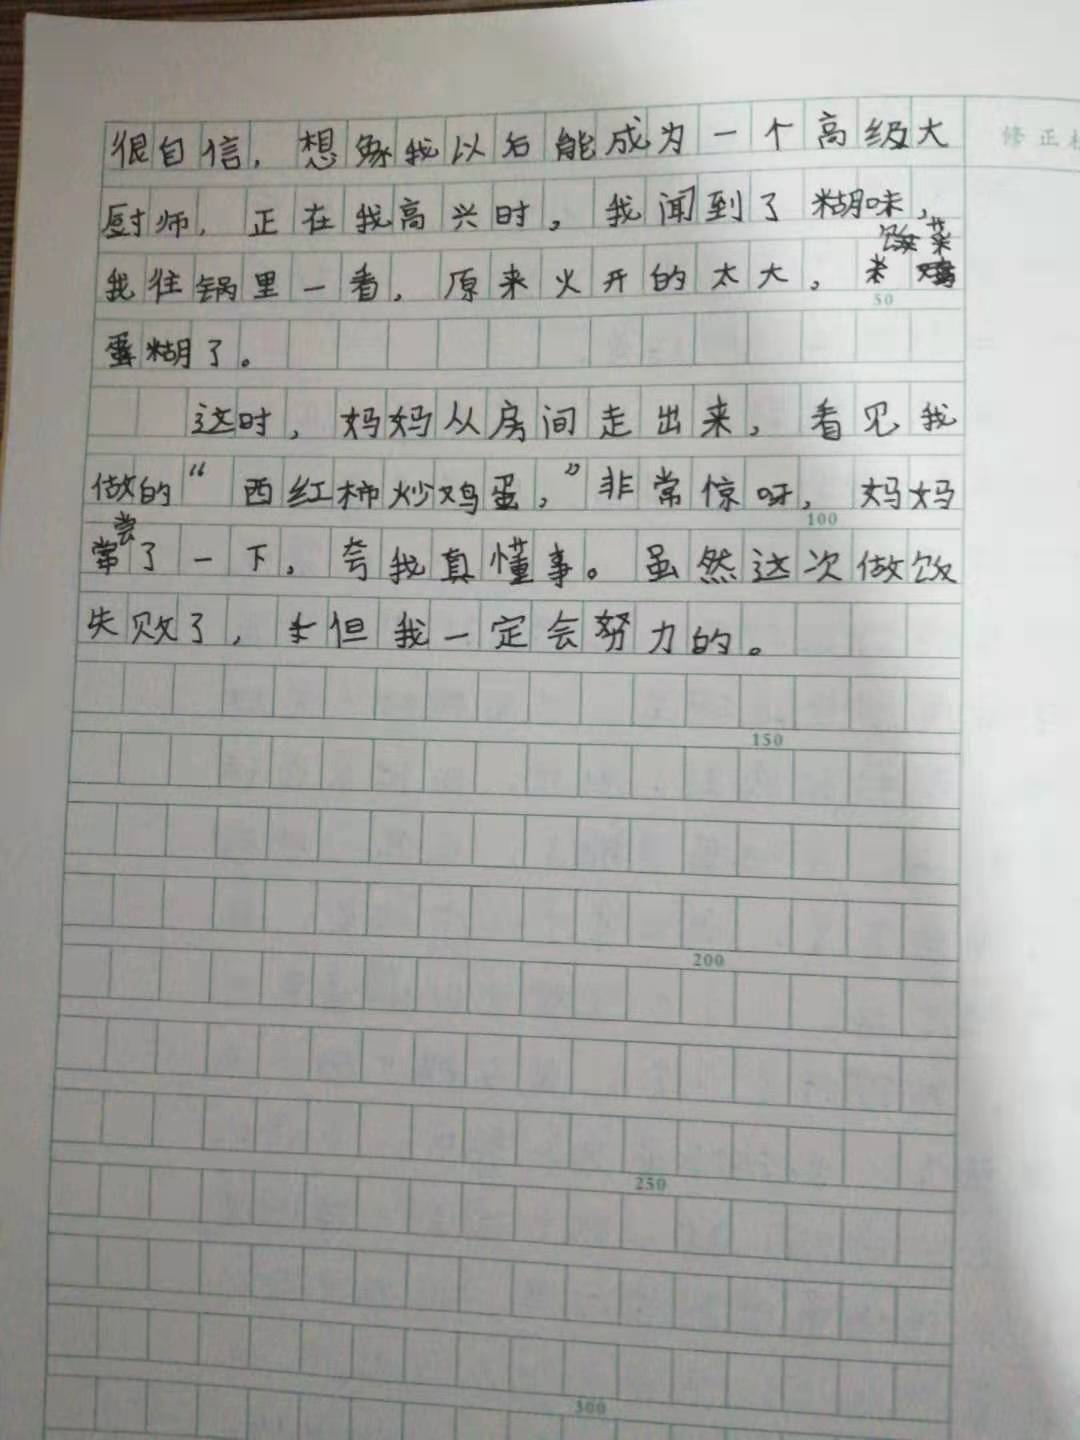 很自信，想象我以后能成为一个高级大
厨师，正在我高兴时，我闻到了糊味，
饭菜
我往锅里一看，原来火开的太大，
蛋糊了。
这时，妈妈从房间走出来，看见我
做的“西红柿炒鸡蛋，”非常惊呀，妈妈
尝
常了一下，夸我真懂事。虽然这次做饭
失败了，但我一定会努力的。
修正
50
100
150
200
250
300